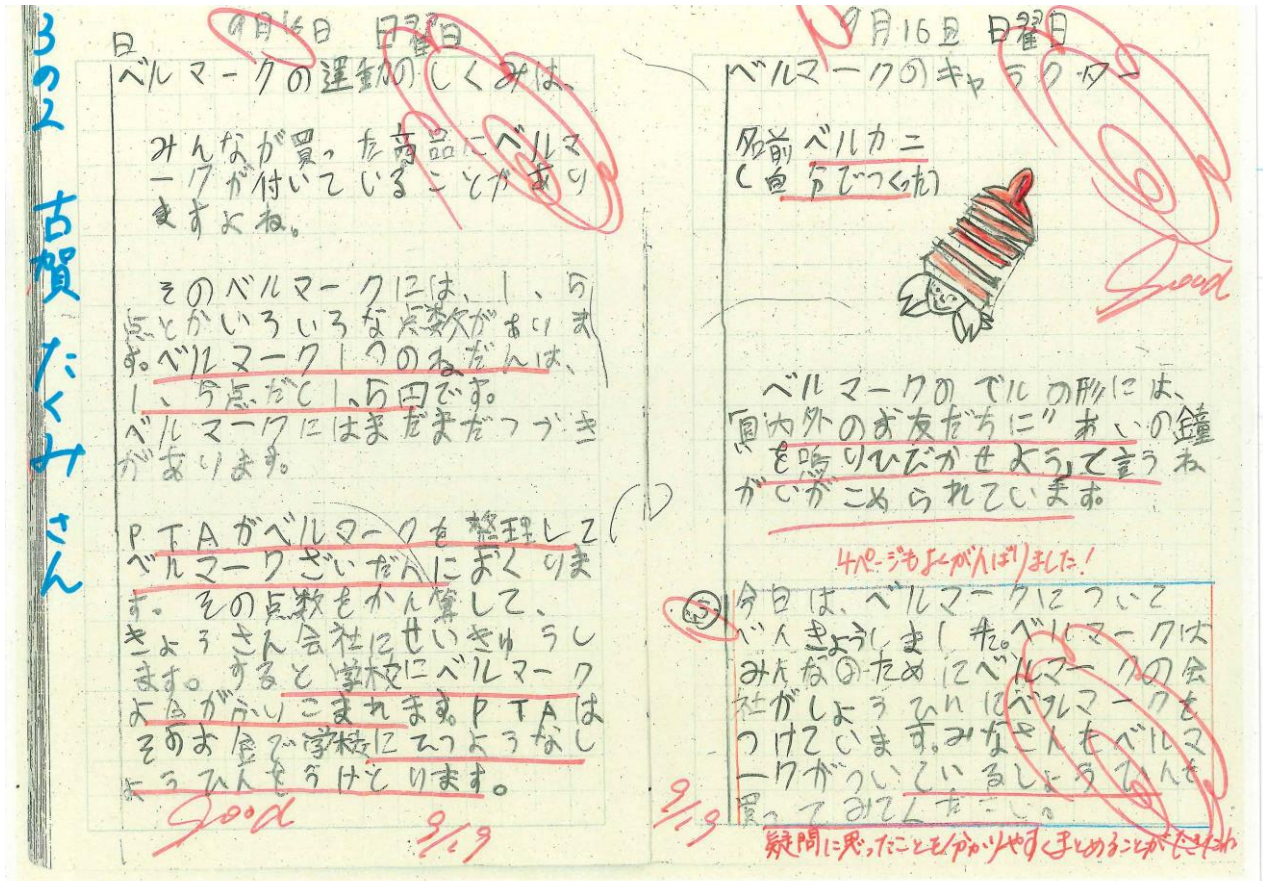 3の2 古賀 たくみ さん
9月16日 日曜日
日
ベルマークの運動のしくみは、
みんなが買った商品にベルマ
ークが付いていることがあり
ますよね。
そのベルマークには、1、5
点とかいろいろな点数がありま
す。ベルマーク1つのねだんは、
1、5点だく1、5円です。
ベルマークにはまだまだつづき
があります。
PTAがベルマークを整理して
ベルマークざいだんにおくりま
す。その点数をかん算して、
きょうさん会社にせいきゅうし
ます。すると学校にベルマーク
よ金がふりこまれます。PTAは
そのお金で学校にひつようなし
ようひんをうけとります。
Good
9/19
9月16日 日曜日
ベルマークのキャラクター
名前 ベルカニ
(自分でつくった)
Good
ベルマークのベルの形には、
「国内外のお友だちに"あいの鐘
を鳴りひびかせよう」て言うね
がいがこめられています。
4ページもよくがんばりました!
今日は、ベルマークについて
べんきょうしました。ベルマークは
みんなのためにベルマークの会
社がしょうひんにベルマークを
つけています。みなさんもベルマ
ークがついているしょうひんを
買ってみてください。
9/19
疑問に思ったことを分かりやすくまとめることができたね